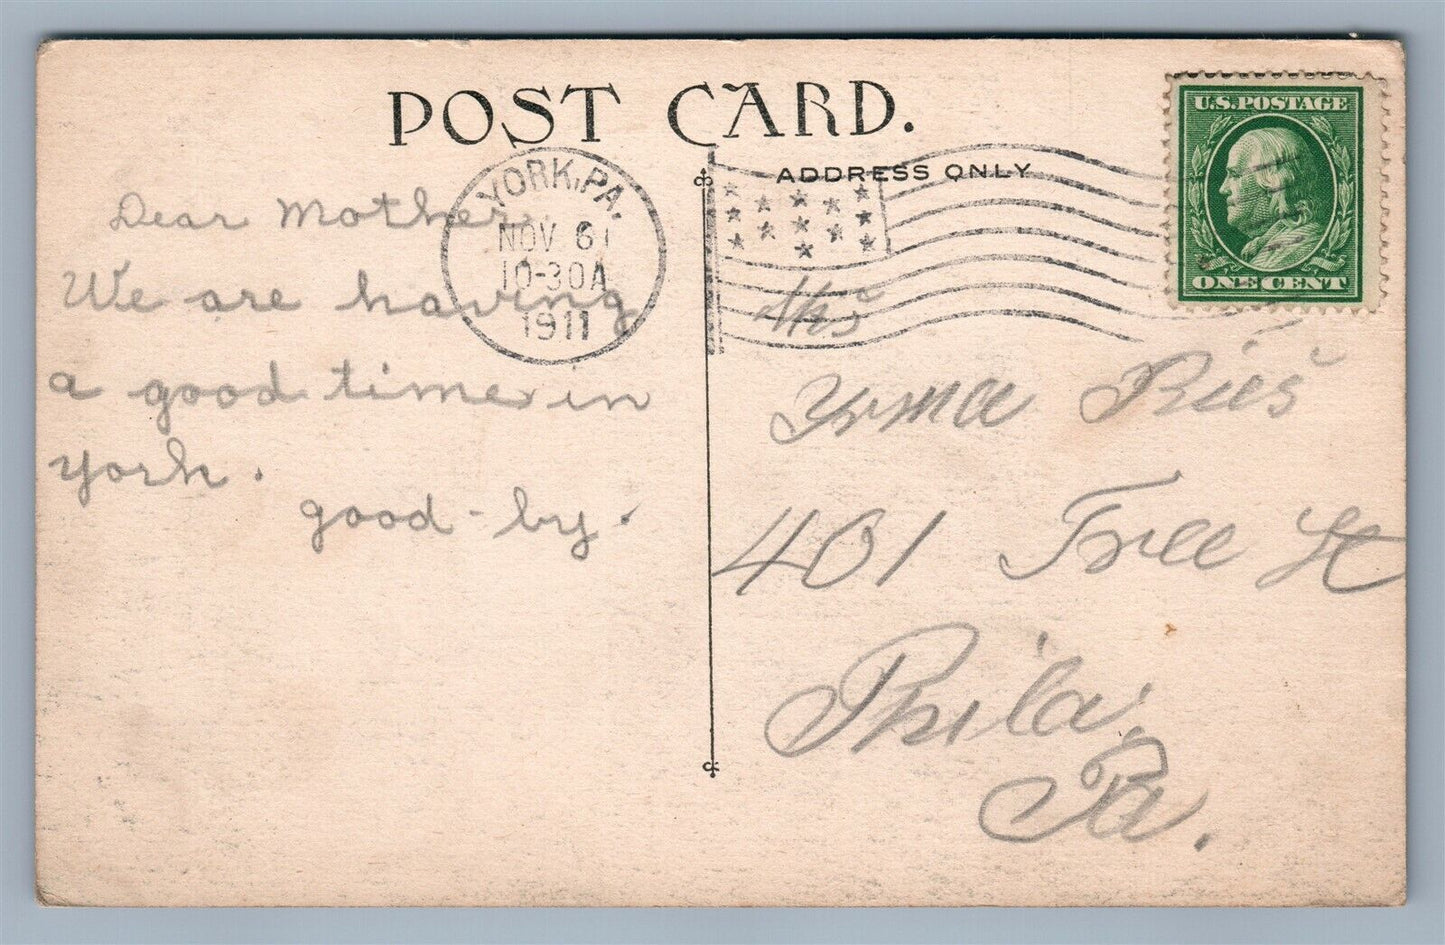 POST CARD.
ADDRESS ONLY
U.S. POSTAGE
ONE CENT
YORK, PA.
NOV 6
10-30A
1911
Dear Mother,
We are having
a good time in
york.
good-by.
Yrma Ries
401 Tree St
Phila,
Pa.